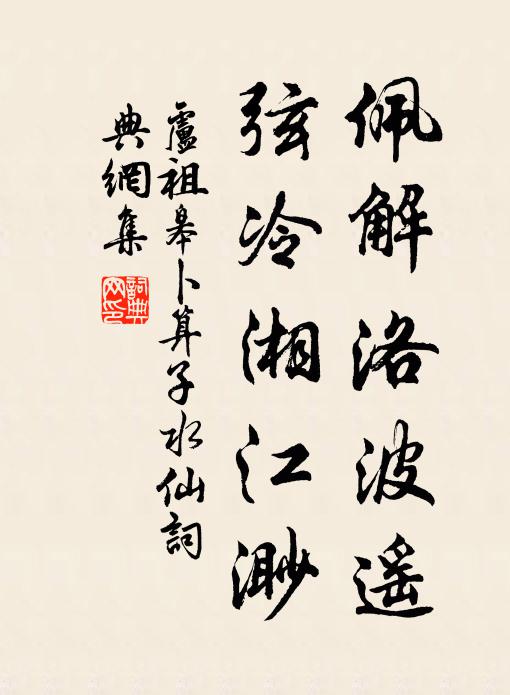 佩解洛波遥
弦冷湘江渺
盧祖皋卜算子水仙詞
典網集
詞典网印